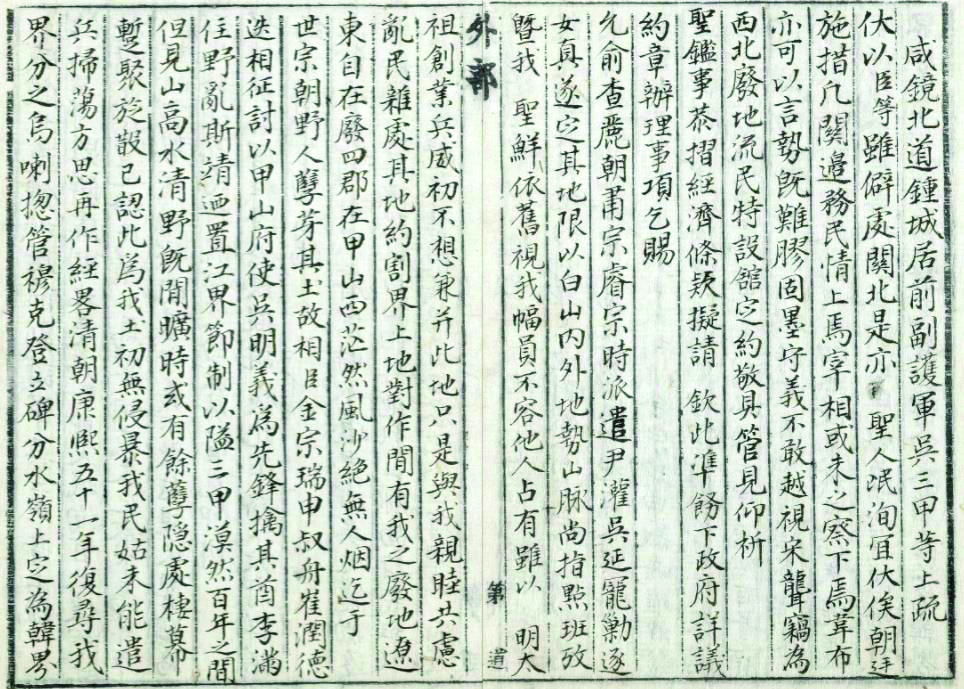 咸鏡北道鍾城居前副護軍吳三甲等上疏
伏以臣等雖僻處關北是亦 聖人氓洵宜伏俟朝廷
施措凡關邊務民情上焉宰相或未之察下焉葦布
亦可以言勢旣難膠固墨守義不敢越視宋聾竊爲
西北廢地流民特設舘定約敬具管見仰析
聖鑑事恭摺經濟條欵擬請 欽此準飭下政府詳議
約章辦理事項乞賜
允俞查麗朝肅宗睿宗時派遣尹灌吳延寵勦逐
女眞遂定其地限以白山內外地勢山脉尙指點班攷
曁我 聖鮮依舊視我幅員不容他人占有雖以 明太
第 道
外部
祖創業兵威初不想兼并此地只是與我親睦共慮
亂民雜處其地約割界上地對作閒有我之廢地遼
東自在廢四郡在甲山西茫然風沙絕無人烟迄于
世宗朝野人孼芽其土故相臣金宗瑞申叔舟崔潤德
迭相征討以甲山府使吳明義爲先鋒擒其酋李滿
住野亂斯靖迺置江界節制以隘三甲漠然百年之間
但見山高水清野旣閒曠時或有餘孼隱處棲幕
蹔聚旋散已認此爲我土初無侵暴我民姑未能遣
兵掃蕩方思再作經畧清朝康熙五十一年復尋我
界分之烏喇摠管穆克登立碑分水嶺上定爲韓界